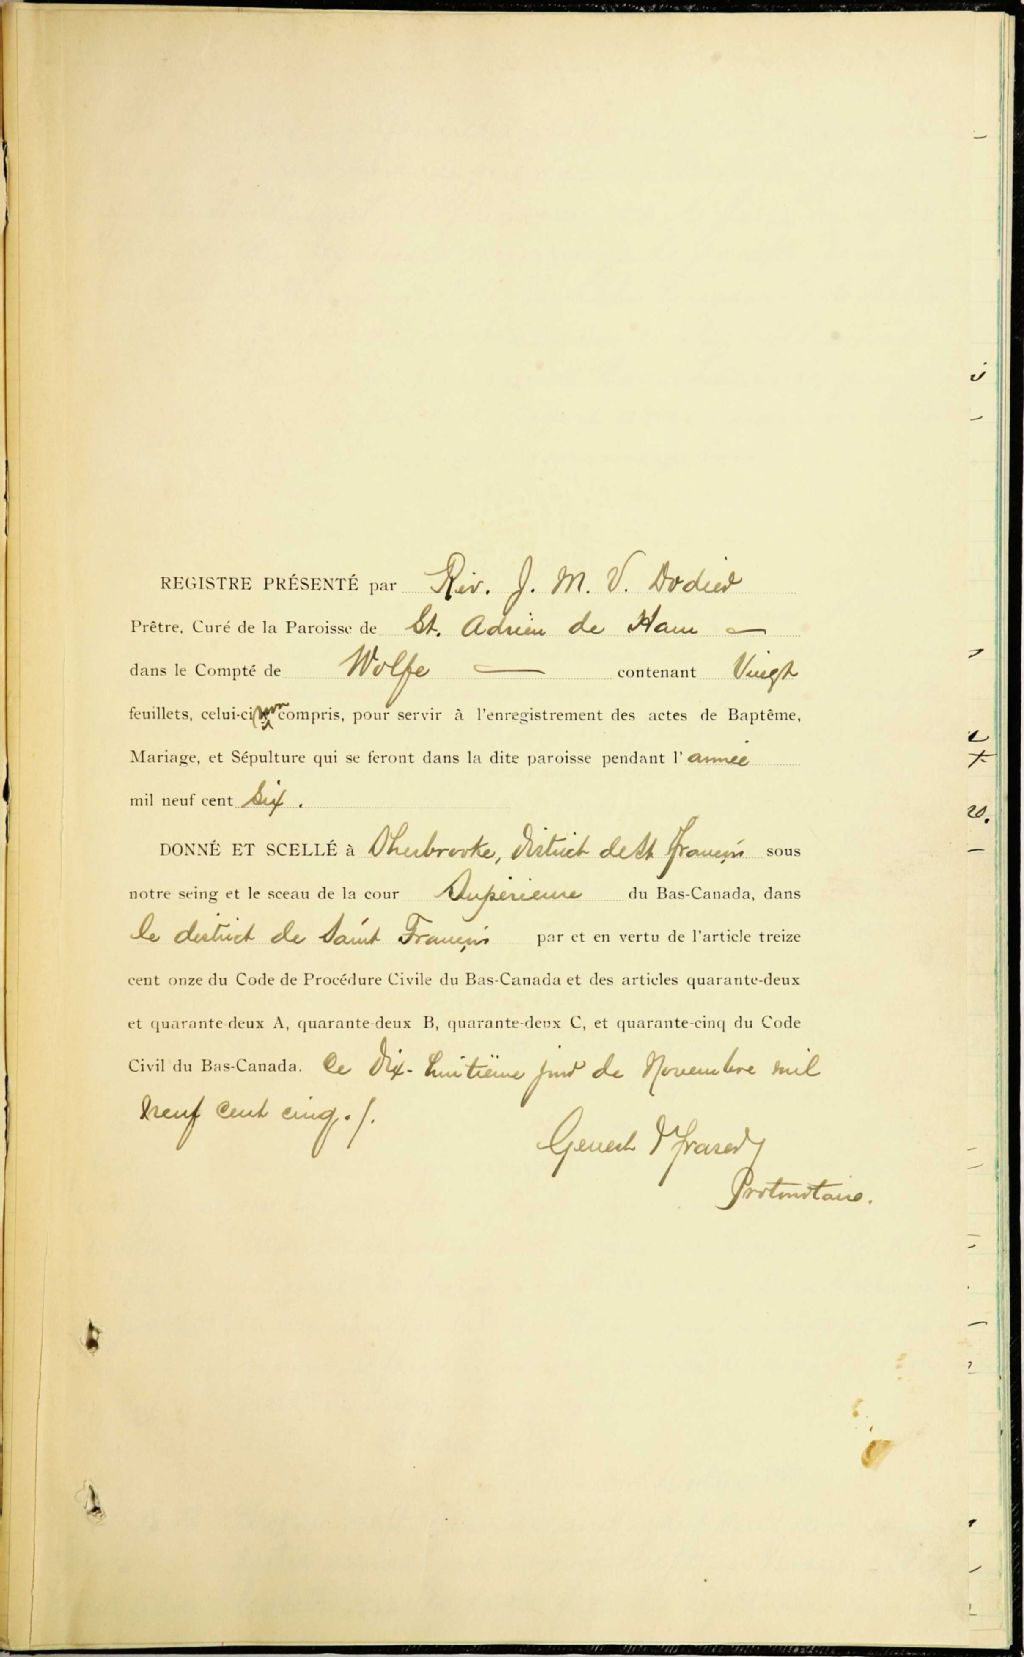 REGISTRE PRÉSENTÉ par Rév. J. M. V. Dodier
Prêtre, Curé de la Paroisse de St. Adrien de Ham —
dans le Compté de Wolfe — contenant Vingt
feuillets, celui-ci non compris, pour servir à l'enregistrement des actes de Baptême,
Mariage, et Sépulture qui se feront dans la dite paroisse pendant l'année
mil neuf cent Six.
DONNÉ ET SCELLÉ à Sherbrooke, District de St François sous
notre seing et le sceau de la cour Supérieure du Bas-Canada, dans
le district de Saint François par et en vertu de l'article treize
cent onze du Code de Procédure Civile du Bas-Canada et des articles quarante-deux
et quarante-deux A, quarante-deux B, quarante-deux C, et quarante-cinq du Code
Civil du Bas-Canada. Ce Dix-huitième jour de Novembre mil
neuf cent cinq./.
Genest & Fraser
Protonotaire.